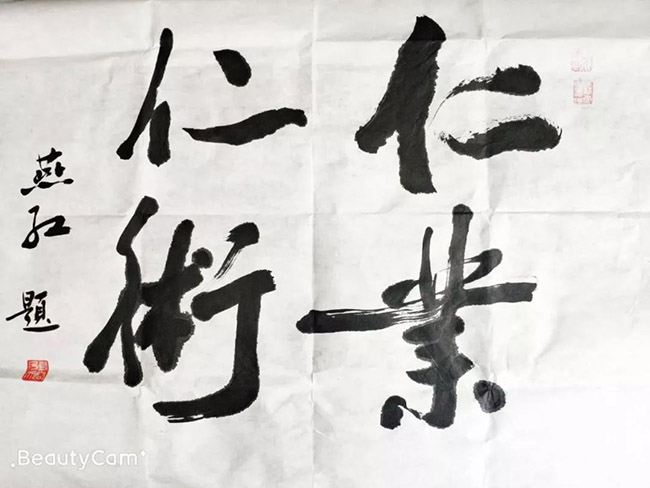 仁業
仁術
燕红 題
BeautyCam